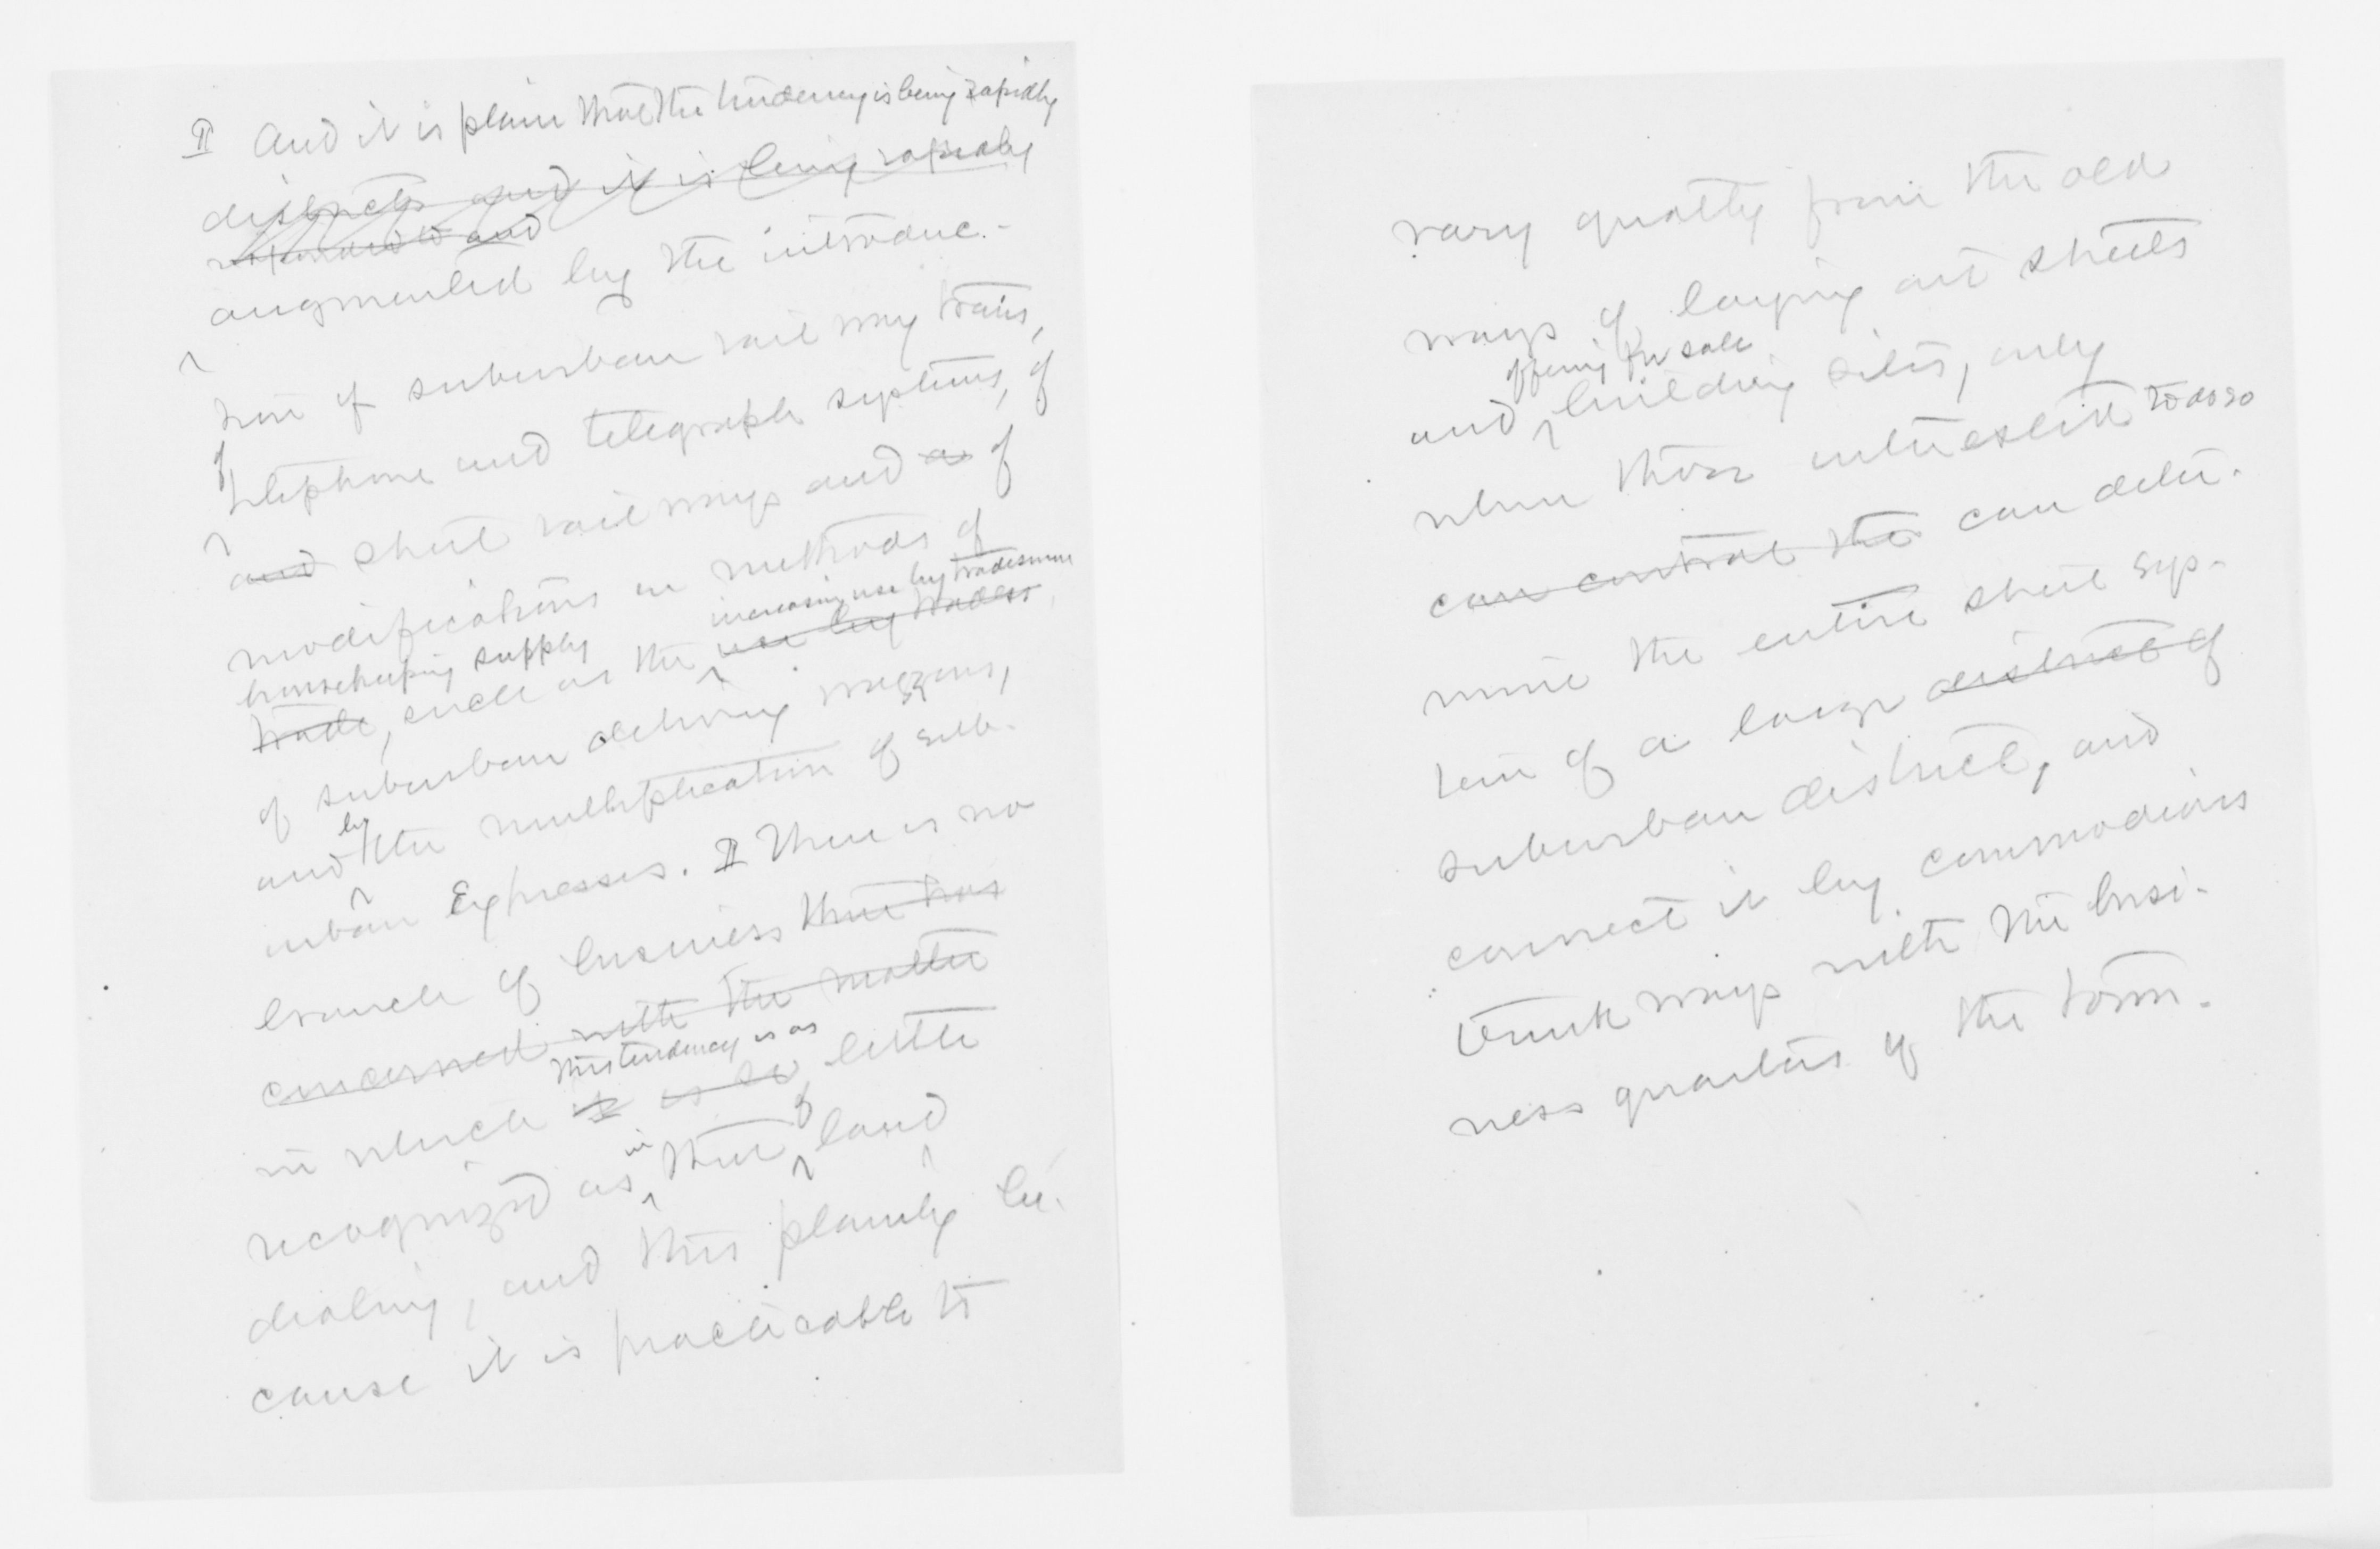 ¶ And it is plain that the tendency is being rapidly
districts and it is being rapidly
and
augmented by the introduc-
tion of suburban rail way trains,
of
telephone and telegraph systems, of
and street rail ways and as of
modifications in methods of
increasing use by tradesmen
housekeeping supply
trade, such as the use by traders
of suburban delivery waggons,
by
and the multiplication of sub-
urban Expresses. ¶ There is no
branch of business that has
concerned with the matter
this tendency is as
in which it is so little
in of
recognized as that land
dealing, and this plainly be-
cause it is practicable to
vary greatly from the old
ways of laying out streets
offering for sale
and building sites, only
when those interested to do so
can control the can deter-
mine the entire street sys-
tem of a large district of
suburban district, and
connect it by commodious
trunk ways with the busi-
ness quarters of the town.